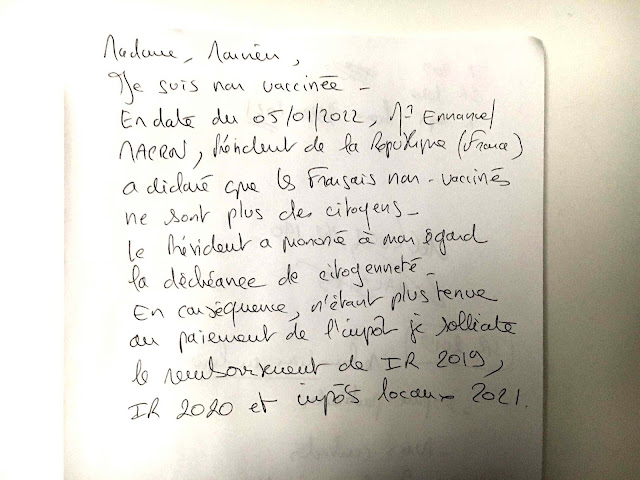 Madame, Monsieur,
Je suis non vaccinée -
En date du 05/01/2022, Mr Emmanuel
MACRON, Président de la République (France)
a déclaré que les Français non-vaccinés
ne sont plus des citoyens -
le Président a prononcé à mon égard
la déchéance de citoyenneté -
En conséquence, n'étant plus tenue
au paiement de l'impôt je sollicite
le remboursement de IR 2019,
IR 2020 et impôts locaux 2021.